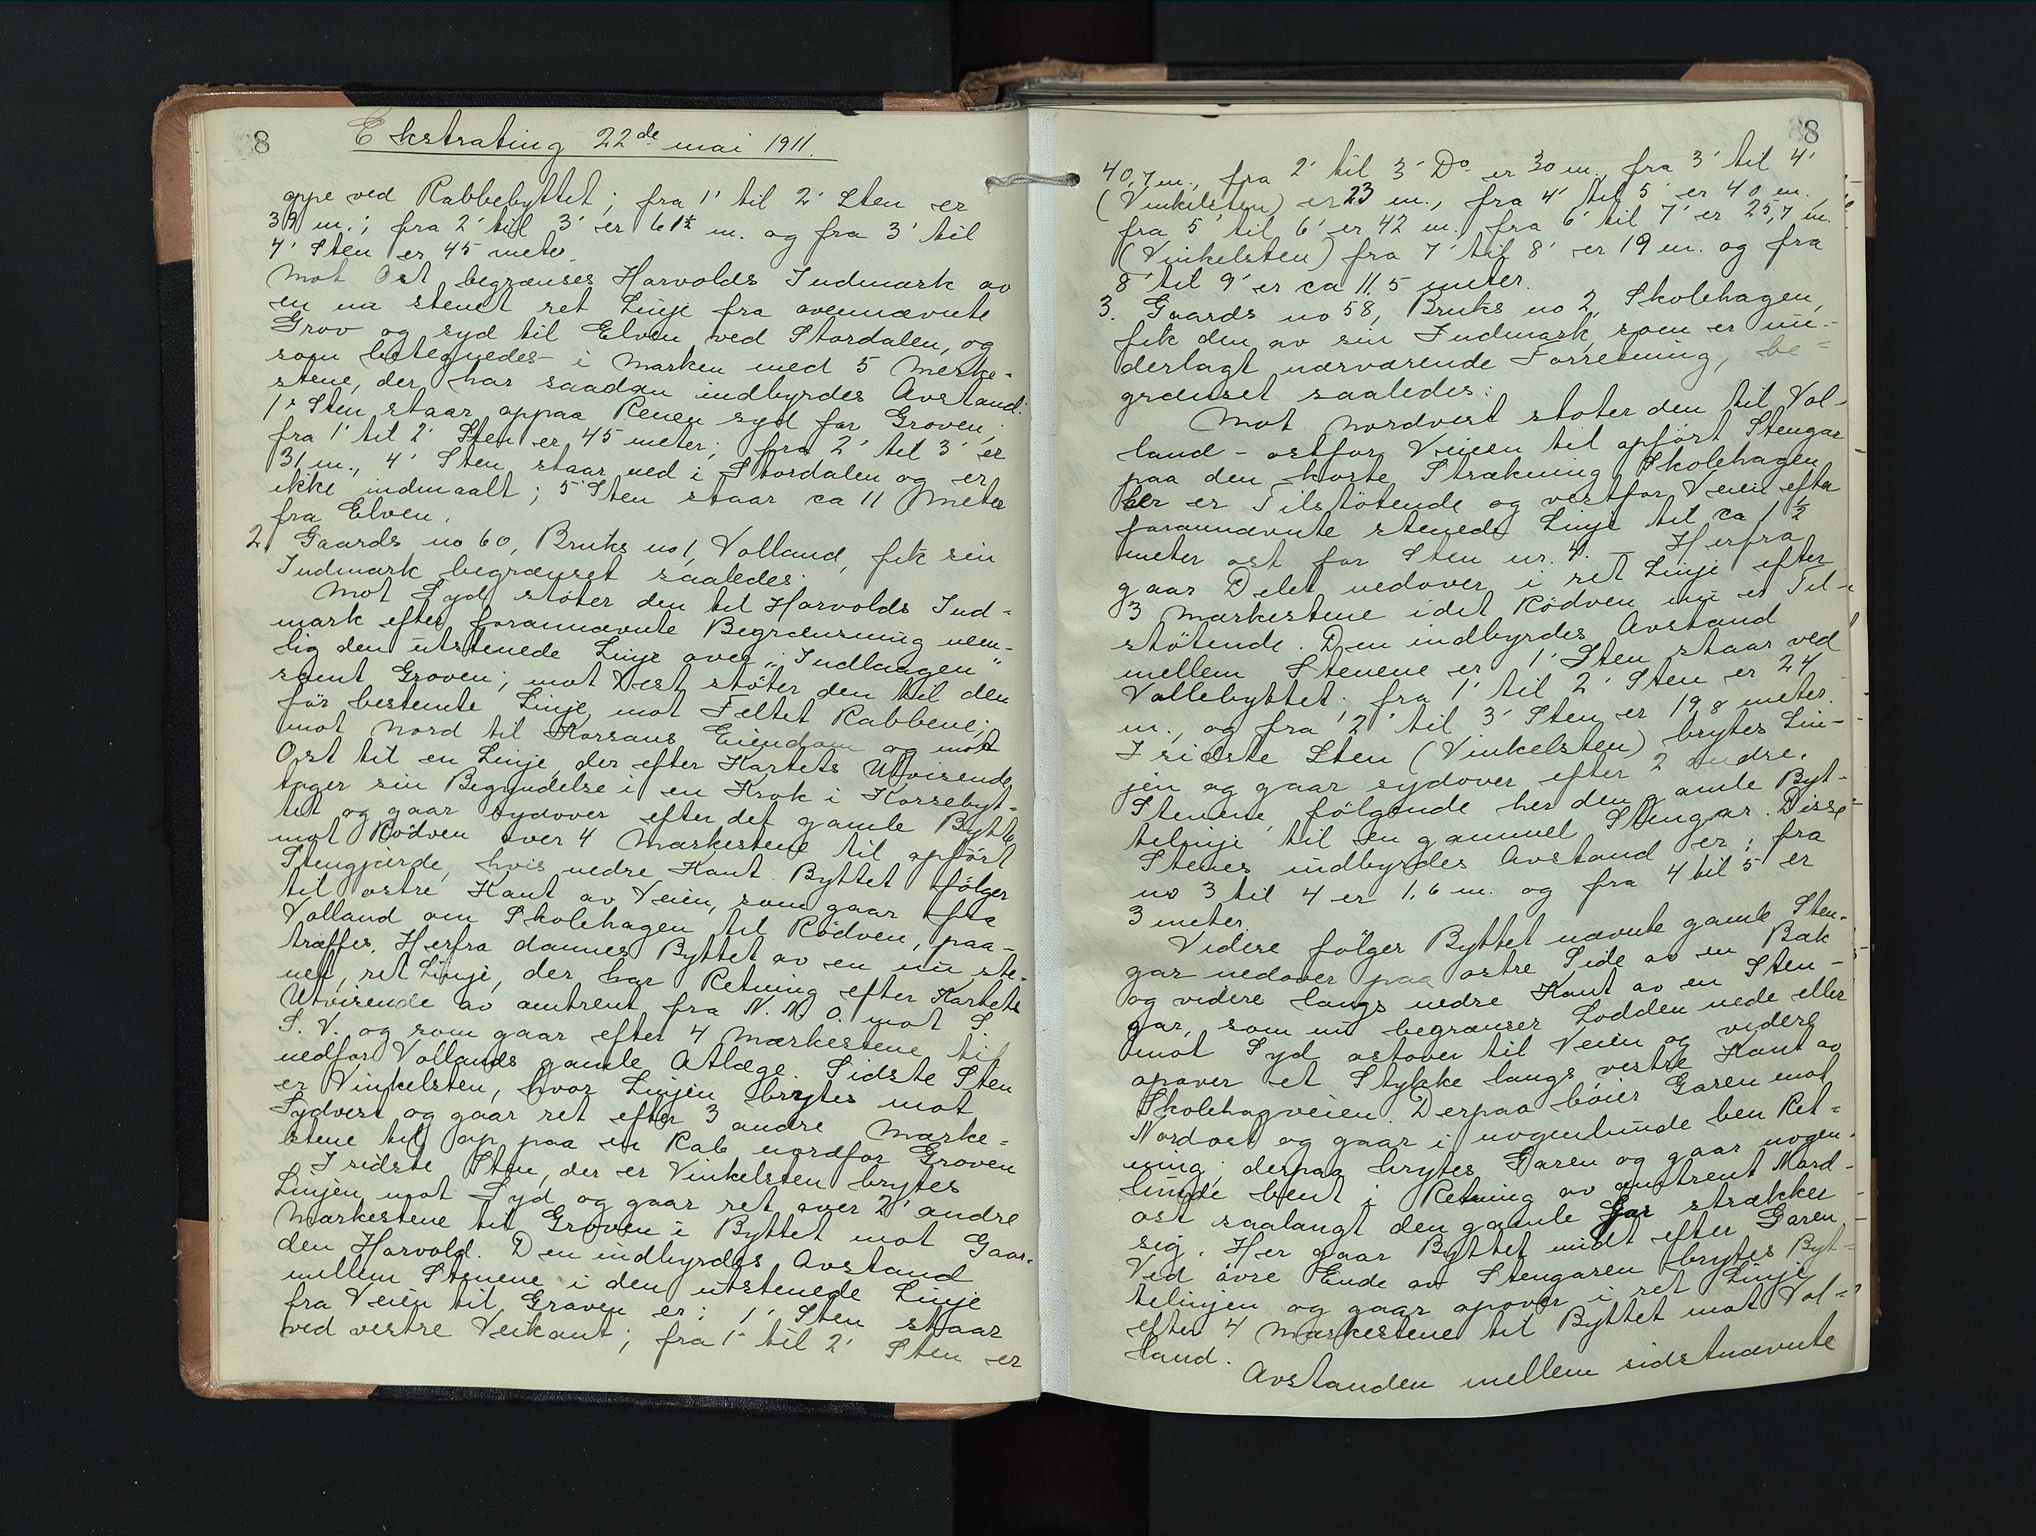 8
Ekstrating 22de mai 1911.
oppe ved Rabbebyttet; fra 1' til 2' Sten er
39 m.; fra 2' til 3' er 61½ m. og fra 3' til
4' Sten er 45 meter.
Mot Ost begrænses Harvolds Indmark av
en nu stenet ret Linje fra ovennævnte
Grov og syd til Elven ved Stordalen, og
som betegnedes i Marken med 5 Merke-
stene, der har saadan indbyrdes Avstand:
1' Sten staar oppaa Renen syd for Groven;
fra 1' til 2' Sten er 45 meter; fra 2' til 3' er
31 m., 4' Sten staar ned i Stordalen og er
ikke indmaalt; 5' Sten staar ca 11 Meter
fra Elven.
2. Gaards no 60, Bruks no 1, Volland, fik sin
Indmark begrænset saaledes:
Mot Syd støter den til Harvolds Ind-
mark efter forannævnte Begrænsning nem-
lig den utstenede Linje over „Indlaagen"
samt Groven; mot Vest støter den til den
før bestemte Linje mot Feltet Rabbene;
mot Nord til Korsans Eiendom og mot
Ost til en Linje, der efter Kartets Utvisende
tager sin Begyndelse i en Krok i Korsebyt-
tet og gaar sydover efter det gamle Bytte
mot Rödven over 4 Markestene til opført
Stengjærde, hvis nedre Kant Byttet følger
til østre Kant av Veien, som gaar fra
Volland om Skolehagen til Rödven, paa-
træffes. Herfra dannes Byttet av en nu ste-
net, ret Linje, der har Retning efter Kartets
Utvisende av omtrent fra N. N. O. mot S.
S. V. og som gaar efter 4 Merkestene til
nedfor Vollands gamle Atlæge. Sidste Sten
er Vinkelsten, hvor Linjen brytes mot
Sydvest og gaar ret efter 3 andre Marke-
stene til op paa en Rab nordfor Groven
I sidste Sten, der er Vinkelsten brytes
Linjen mot Syd og gaar ret over 2 andre
Markestene til Groven i Byttet mot Gaar-
den Harvold. Den indbyrdes Avstand
mellem Stenene i den utstenede Linje
fra Veien til Groven er: 1' Sten staar
ved vestre Veikant; fra 1' til 2' Sten er
8
40,7 m., fra 2' til 3' Do er 30 m., fra 3' til 4'
(Vinkelsten) er 23 m., fra 4' til 5' er 40 m.,
fra 5' til 6' er 42 m., fra 6' til 7' er 25,7 m.
(Vinkelsten) fra 7' til 8' er 19 m. og fra
8' til 9' er ca 11,5 meter.
3. Gaards no 58, Bruks no 2, Skolehagen,
fik den av sin Indmark, som er un-
derlagt nærværende Forretning, be-
grænset saaledes:
Mot Nordvest støter den til Vol-
land - ostfor Veien til opført Stengar
paa den korte Strækning Skolehagen
her er Tilstötende og vestfor Veien efter
forannævnte stenede Linje til ca 1 ½
meter ost for Sten nr. 4. — Herfra
gaar Delet nedover i ret Linje efter
3 Markestene idet Rödven nu er Til-
stötende. Den indbyrdes Avstand
mellem Stenene er 1' Sten staar ved
Vollebyttet; fra 1' til 2' Sten er 24
m., og fra 2' til 3' Sten er 19,8 meter.
I sidste Sten (Vinkelsten) brytes Lin-
jen og gaar sydover efter 2 andre
Stenene, følgende her den gamle Byt-
telinje til en gammel Stengar. Disse
Stenes indbyrdes Avstand er: fra
no 3 til 4 er 1,6 m. og fra 4 til 5 er
3 meter.
Videre følger Byttet nævnte gamle Sten-
gar nedover paa østre Side av en Bæk
og videre langs nedre Kant av en Sten-
gar, som nu begrænser Lodden nede eller
mot Syd ostover til Veien og videre
opover et Stykke langs vestre Kant av
Skolehagveien. Derpaa bøier Garen mot
Nordost og gaar i nogenlunde ben Ret-
ning; derpaa brytes Garen og gaar nogen-
lunde bent i Retning av omtrent Nord-
ost saalangt den gamle Gar strækker
sig. Her gaar Byttet midt efter Garen
Ved øvre Ende av Stengaren brytes Byt-
telinjen og gaar opover i ret Linje
efter 4 Markestene til Byttet mot Vol-
land.
Avstanden mellem sidstnævnte